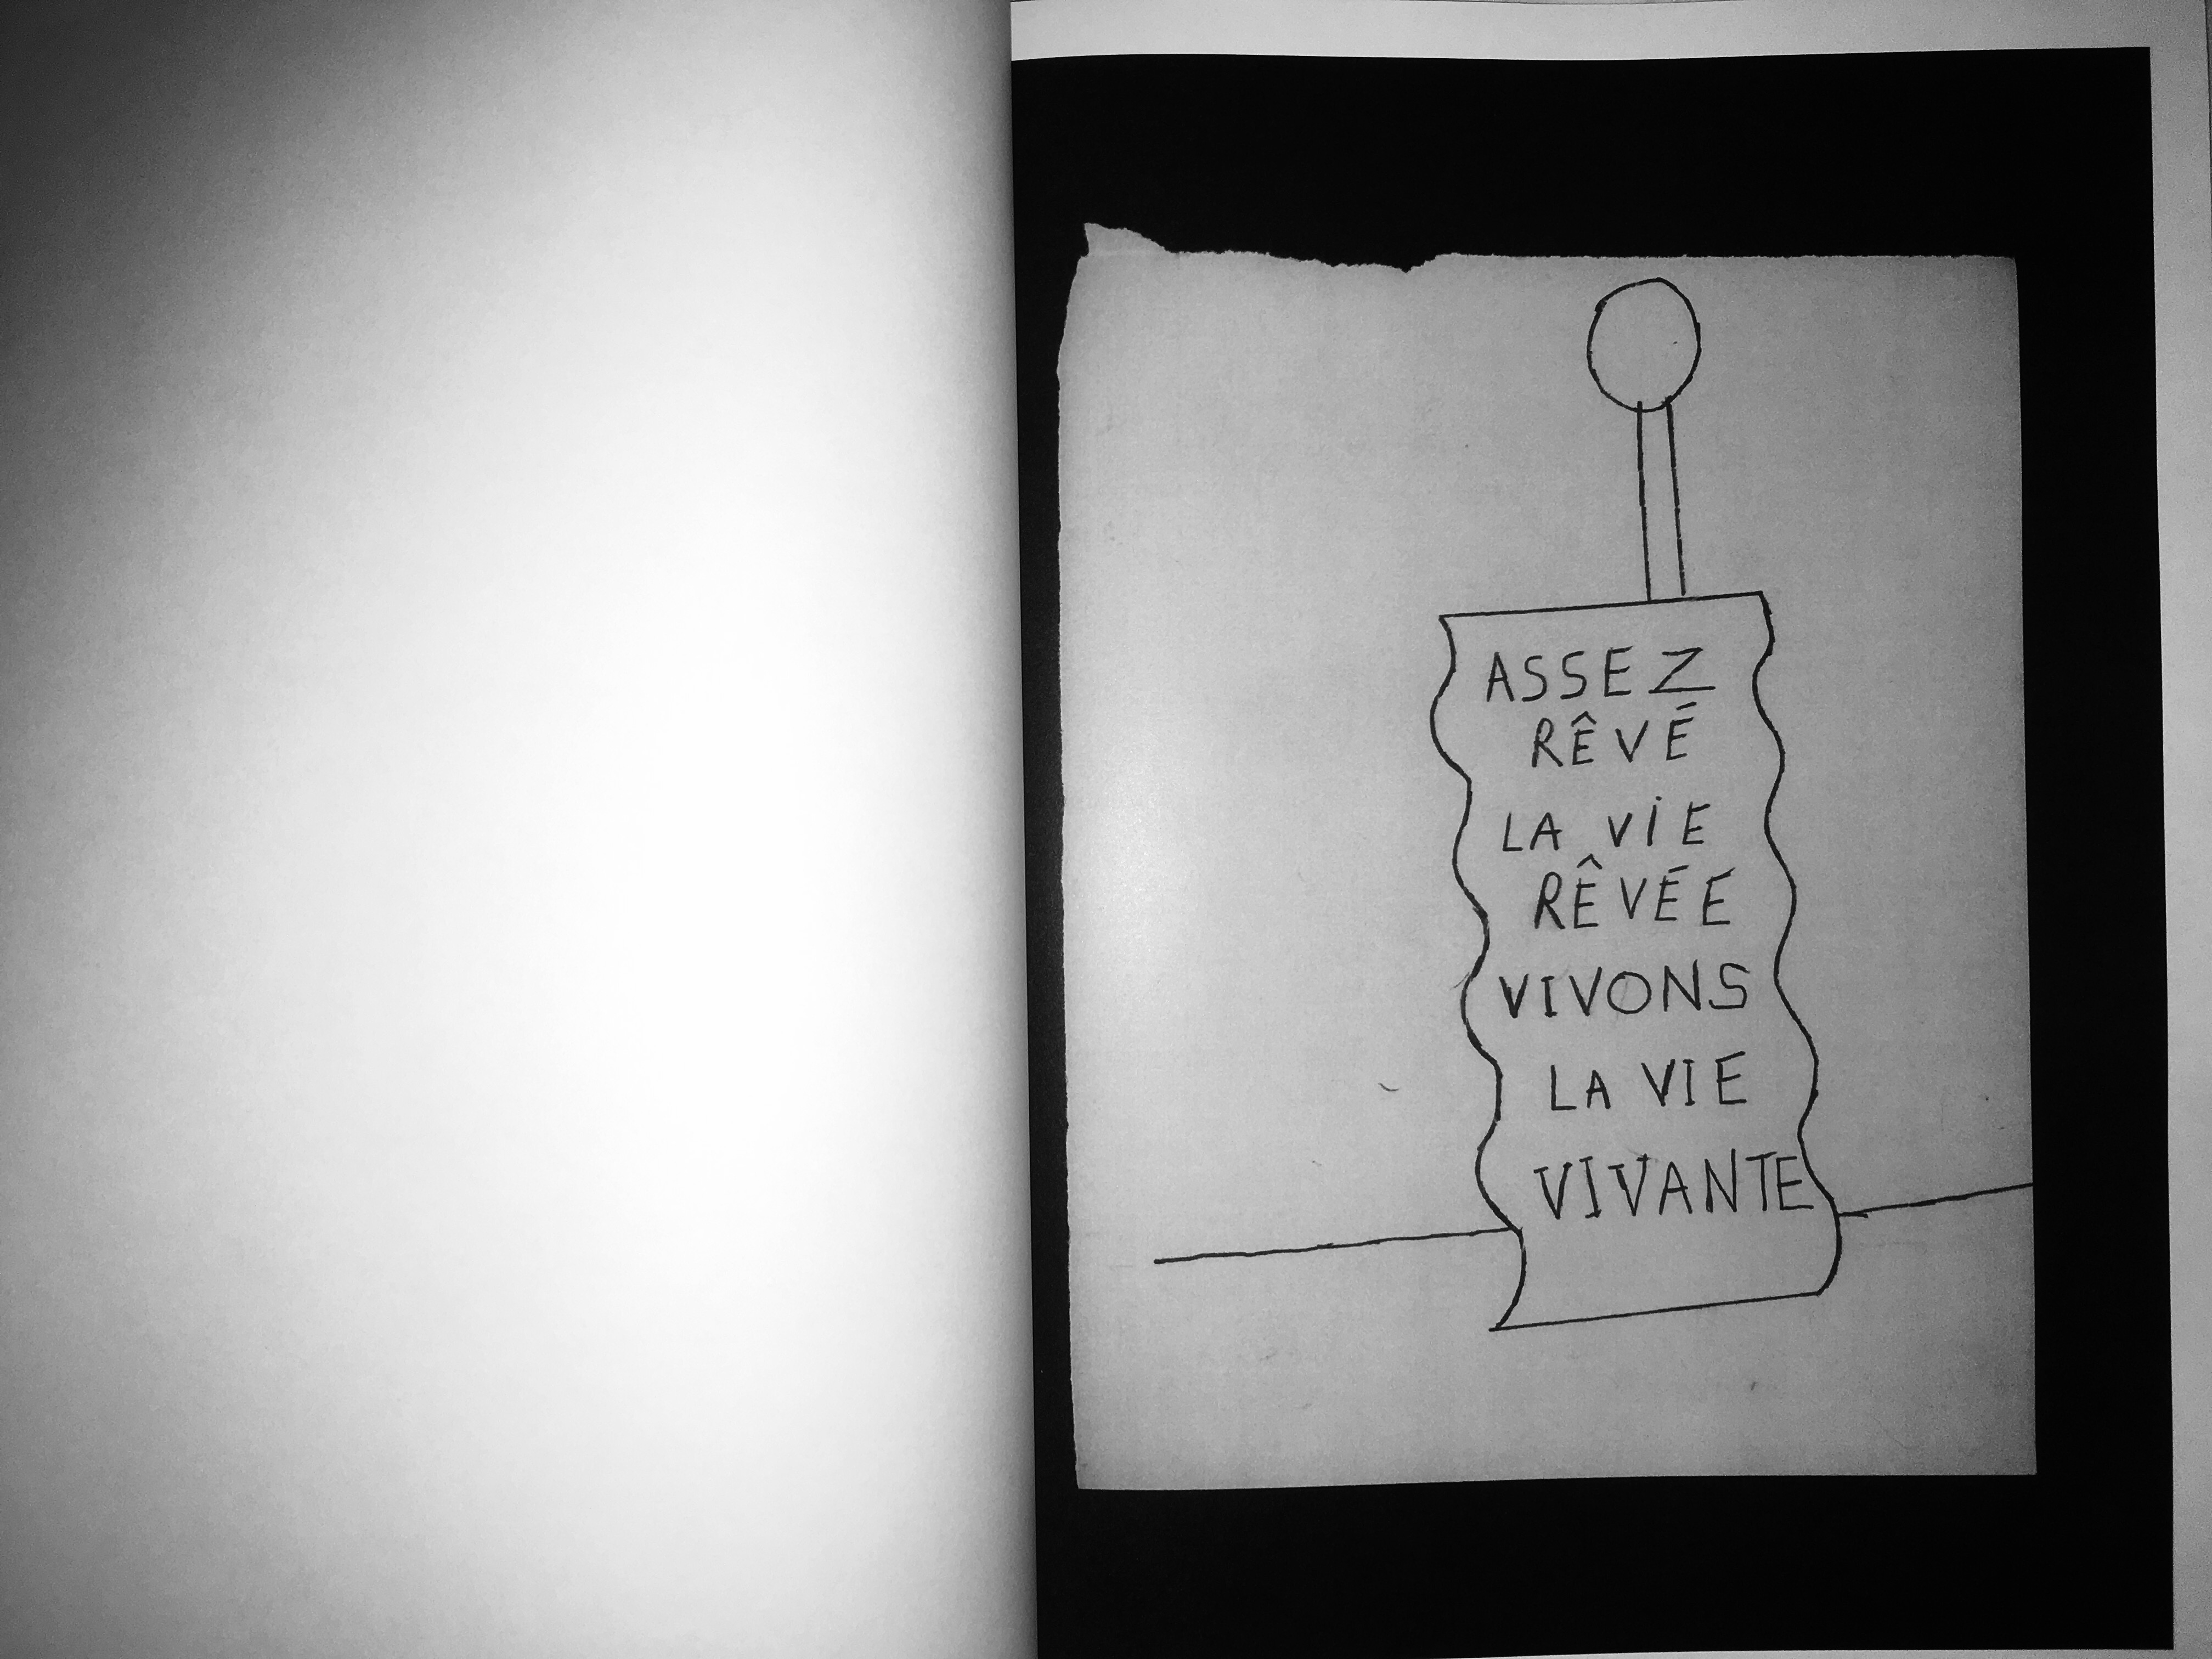 ASSEZ
RÊVÉ
LA ViE
RÊVÉE
VIVONS
LA VIE
VIVANTE